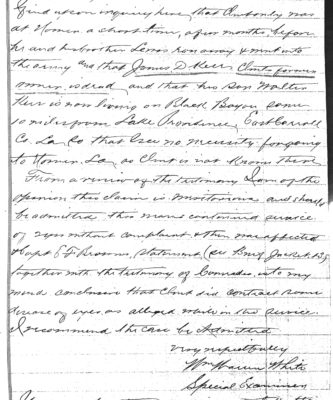 find upon inquiry here, that Clint only was
at Homer a short time, a few months, before
he and his brother Lewis ran away & went into
the army and that James D Kerr Clint's former
owner is dead, and that his Son Walter
Kerr is now living on Black Bayou some
10 miles from Lake Providence, East Carroll
Co. La. So that I see no necessity for going
to Homer, La, as Clint is not known there.
From a review of the testimony I am of the
opinion this claim is meritorious and should
be admitted. this man's continued service
of without complaint
of Capt E F Brown's statement (see Jacket
together with the testimony of Comrades, is to my
mind conclusive that Clint did contract some
disease of eyes as alleged while in the service.
I recommend the case be Admitted.
Very respectfully
Wm Warren White
Special Examiner